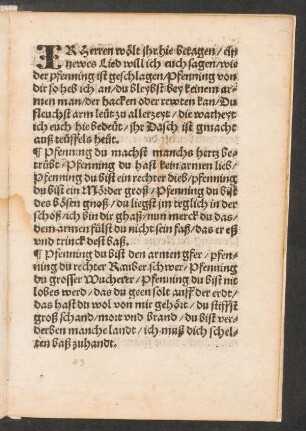 IR Herren wölt jhr hie betagen / ein
newes Lied will ich euch sagen / wie
der pfenning ist geschlagen / Pfenning von
dir so heb ich an / du bleybst bey keinem ar-
men man / der hacken oder rewten kan / Du
fleuchst arm leüt zu allerzeyt / die warheyt
ich euch hie bedeüt / jhr Dasch ist gmacht
auß teüffels heüt.
¶ Pfenning du machst manchs hertz be-
trübt / Pfenning du hast kein armen lieb /
Pfenning du bist ein rechter dieb / pfenning
du bist ein Mörder groß / Pfenning du bist
des bösten gnoß / du liegst im teglich in der
schoß / ich bin dir ghaß / nun merck du das /
dem armen fülst du nicht sein faß / das er eß
und trinck dest baß.
¶ Pfenning du bist den armen gfer / pfen-
ning du rechter Rauber schwer / Pfenning
du grosser Wucherer / Pfenning du bist nit
lobes werd / das du geen solt auff der erdt /
das hast du wol von mir gehört / du stiffst
groß schand / mort vnd brand / du bist ver-
derben manche landt / ich muß dich schel-
ten baß zuhandt.
43